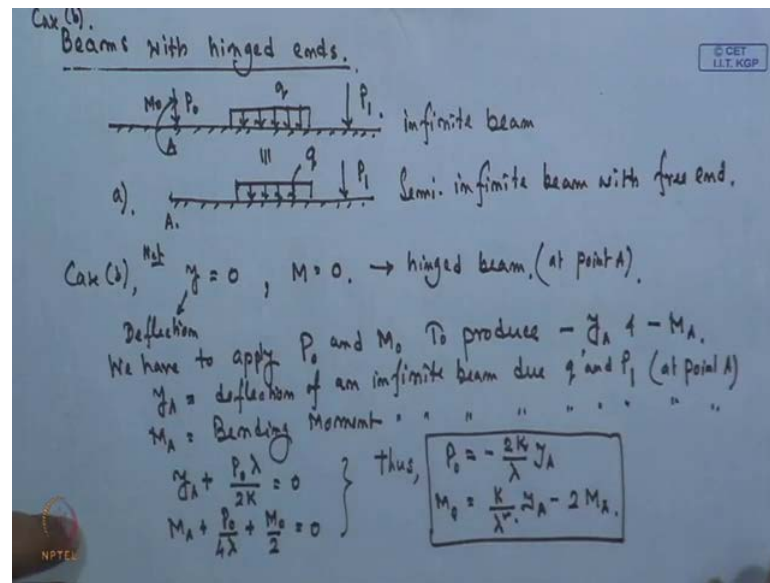 Case (b).
Beams with hinged ends.
© CET
I.I.T. KGP
M₀ P₀ q P₁
A
infinite beam
a). q P₁ Semi-infinite beam with free end.
A.
Case (b), Net y = 0, M = 0. → hinged beam. (at point A).
Deflection
We have to apply P₀ and M₀ To produce - y_A & - M_A.
y_A = deflection of an infinite beam due q and P₁ (at point A)
M_A = Bending Moment " " " " " " " "
y_A + P₀λ/2K = 0
M_A + P₀/4λ + M₀/2 = 0
} Thus,
P₀ = - 2K/λ y_A
M₀ = K/λ². y_A - 2 M_A.
NPTEL